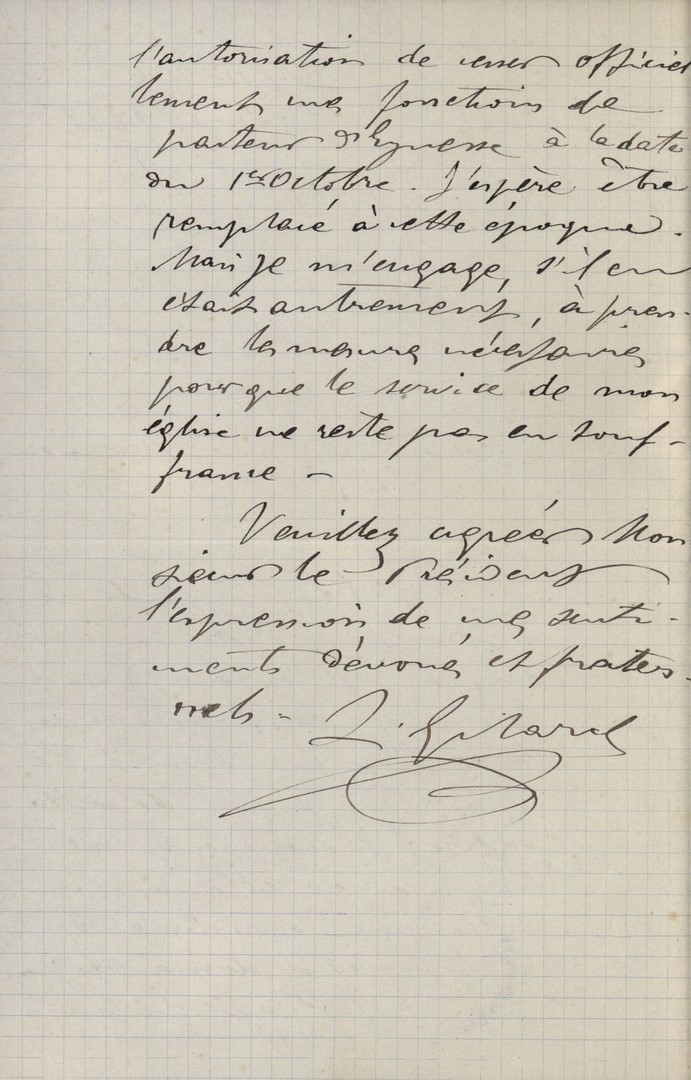 l'autorisation de cesser officiel
lement mes fonctions de
pasteur d'Eynesse à la date
du 1er Octobre. J'espère être
remplacé à cette époque.
Mais je m'engage, s'il en
était autrement, à pren-
dre les mesures nécessaires
pour que le service de mon
église ne reste pas en souf-
france -
Veuillez agréer Mon
sieur le Président
l'expression de mes senti-
ments dévoués et frater-
nels -